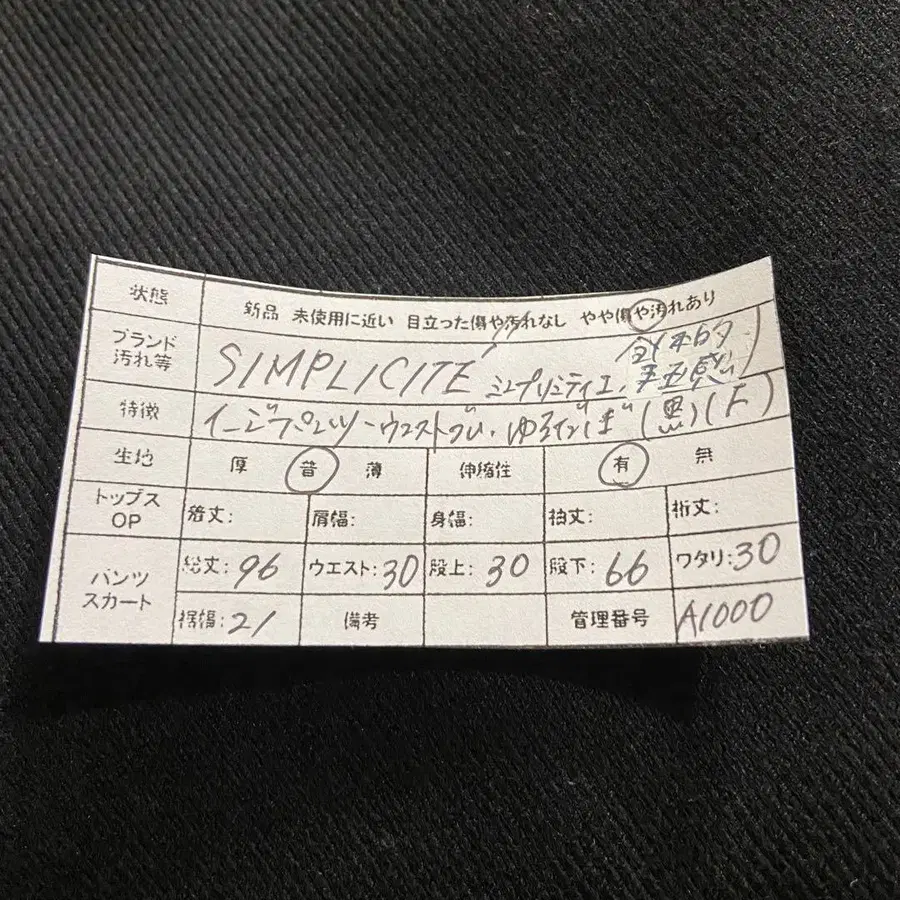 状態 新品 未使用に近い 目立った傷や汚れなし やや傷や汚れあり
ブランド 汚れ等 SIMPLICITÉ シンプリシティエ. 全体的 毛玉感
特徴 イージーパンツ ウエスト ゆるテーパード (黒)(F)
生地 厚 普 薄 伸縮性 有 無
トップス OP 着丈: 肩幅: 身幅: 袖丈: 裄丈:
パンツ スカート 総丈: 96 ウエスト: 30 股上: 30 股下: 66 ワタリ: 30
裾幅: 21 備考 管理番号 A1000